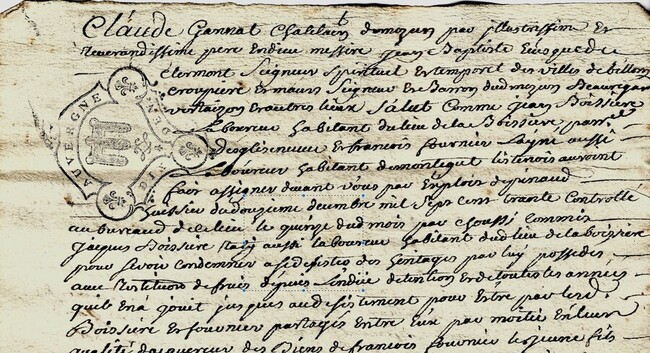 Claude Gannat Chatelain de mozun par illustrissime Et
Reverendissime pere En dieu messire Jean Baptiste Evesque de
Clermont Seigneur Spirituel Et temporel des villes de billom
Croupiere Et mauns Seigneur Et Barron dud mozun Beauregard
vertaizon Et autres lieux Salut Comme Jean Boissiere
Laboureur habitant du lieu de la Boissiere, parr
deoglizeneuve Et francois fournier L'ayné aussi
Laboureur habitant de auroient
fait assigner devant vous par Exploit
huissier du douzieme decembre mil Sept cent trante Controllé
au bureau de Ce lieu le quinze dud mois par Choussi Commis
Jacques Boissiere aussi laboureur habitant dud lieu de la boissiere
pour Se voir Condemner a Se desister des heritages par luy possedes
avec Restitution de fruis depuis Lindüe detention Et de toutes les années
quil En a jouit jusques au desistement pour Estre par lesd
Boissiere Et fournier partagés Entre Eux par moitié En leur
qualité dacquereur des Biens de francois fournier le jeune fils
AUVERGNE
DIE
DEN